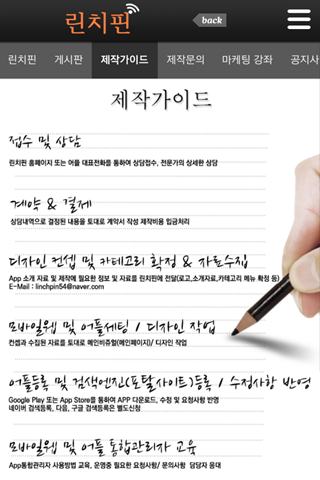 린치핀
back
린치핀 게시판 제작가이드 제작문의 마케팅 강좌 공지사
제작가이드
접수 및 상담
린치핀 홈페이지 또는 어플 대표전화를 통하여 상담접수, 전문가의 상세한 상담
계약 & 결제
상담내역으로 결정된 내용을 토대로 계약서 작성 제작비용 입금처리
디자인 컨셉 및 카테고리 확정 & 자료수집
App 소개 자료 및 제작에 필요한 정보 및 자료를 린치핀에 전달(로고,소개자료,카테고리 메뉴 확정 등)
E-Mail : linchpin54@naver.com
모바일웹 및 어플세팅 / 디자인 작업
컨셉과 수집된 자료를 토대로 메인비쥬얼(메인페이지)/ 디자인 작업
어플등록 및 검색엔진(포탈사이트)등록 / 수정사항 반영
Google Play 또는 App Store를 통하여 APP 다운로드, 수정 및 요청사항 반영
네이버 검색등록, 다음, 구글 검색등록은 별도신청
모바일웹 및 어플 통합관리자 교육
App통합관리자 사용방법 교육, 운영중 필요한 요청사항/ 문의사항 담당자 응대